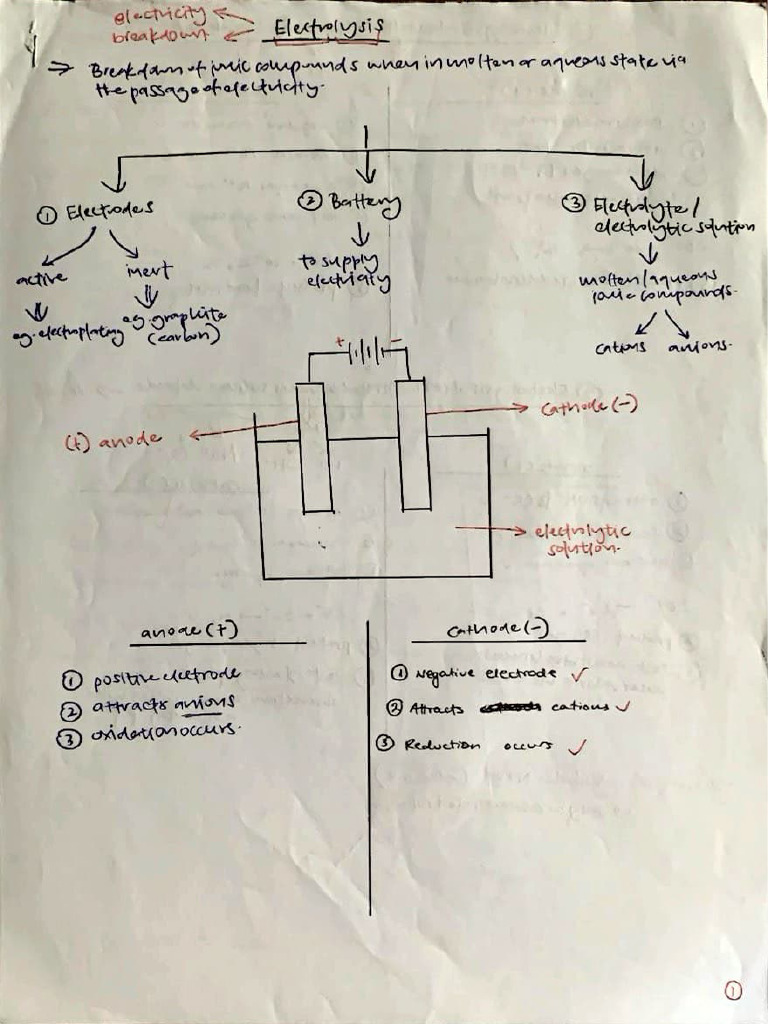 electricity
breakdown
Electrolysis
⇒ Breakdown of ionic compounds when in molten or aqueous state via
the passage of electricity.
① Electrodes
② Battery
③ Electrolyte/
electrolytic solution
active
inert
to supply
electricity
molten/aqueous
ionic compounds.
eg. electroplating
eg. graphite
(carbon)
cations
anions.
+
-
(+) anode
cathode (-)
electrolytic
solution.
anode (+)
① positive electrode
② attracts anions
③ oxidation occurs.
cathode (-)
① Negative electrode ✓
② Attracts cations ✓
③ Reduction occurs ✓
①